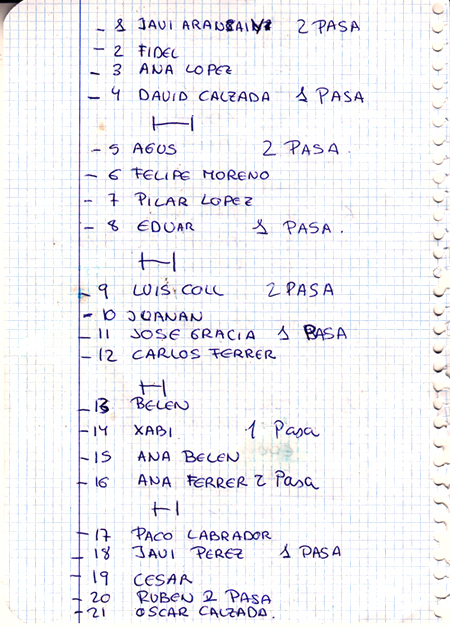 - 1 JAVI ARANSAIN 2 PASA
- 2 FIDEL
- 3 ANA LOPEZ
- 4 DAVID CALZADA 1 PASA
- 5 AGUS 2 PASA.
- 6 FELIPE MORENO
- 7 PILAR LOPEZ
- 8 EDUAR 1 PASA.
- 9 LUIS COLL 2 PASA
- 10 JUANAN
- 11 JOSE GRACIA 1 PASA
- 12 CARLOS FERRER
- 13 BELEN
- 14 XABI 1 Pasa
- 15 ANA BELEN
- 16 ANA FERRER 2 Pasa
- 17 PACO LABRADOR
- 18 JAVI PEREZ 1 PASA
- 19 CESAR
- 20 RUBEN 2 PASA
- 21 OSCAR CALZADA.